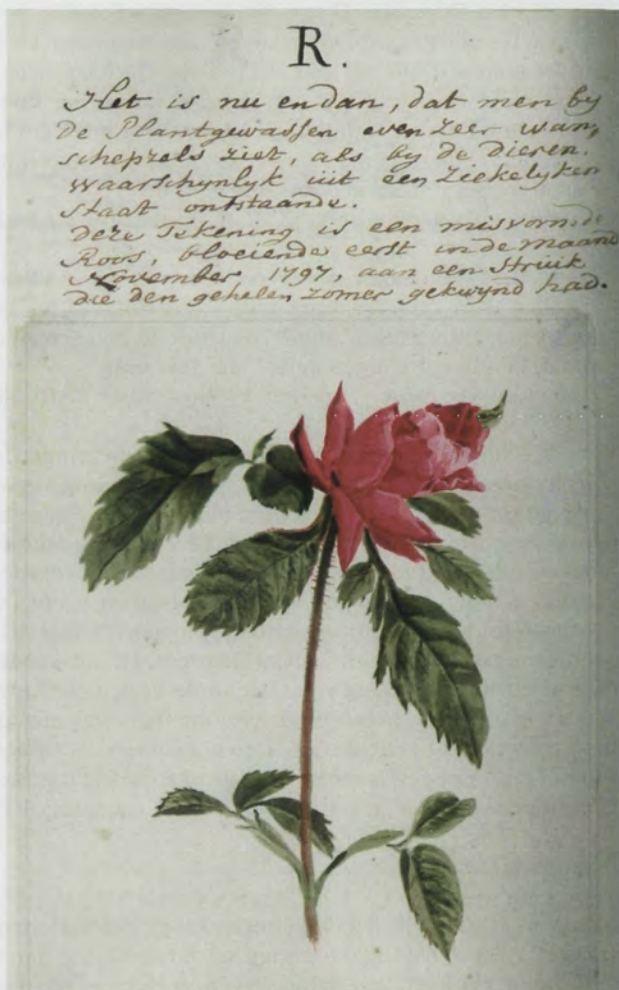 R.
Het is nu en dan, dat men by
de Plantgewassen even zeer wan,
schepzels ziet, als by de dieren.
waarschynlyk uit een ziekelyken
staat ontstaande.
deze Tekening is een misvormde
Roos, bloeiende eerst in de maand
November 1797, aan een struik
die den gehelen zomer gekwynd had.